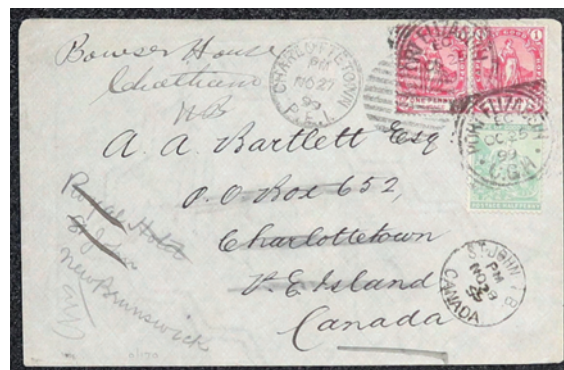 Bowser House
Chatham
NB
CHARLOTTETOWN
PM
NO 27
99
P.E.I.
PORT ELIZABETH
OC 25
99
C.G.H
1
A. A. Bartlett Esq
P.O Box 652,
Charlottetown
P. E. Island
Canada
Royal Hotel
St John
New Brunswick
ST. JOHN N.B.
PM
NO 29
99
CANADA